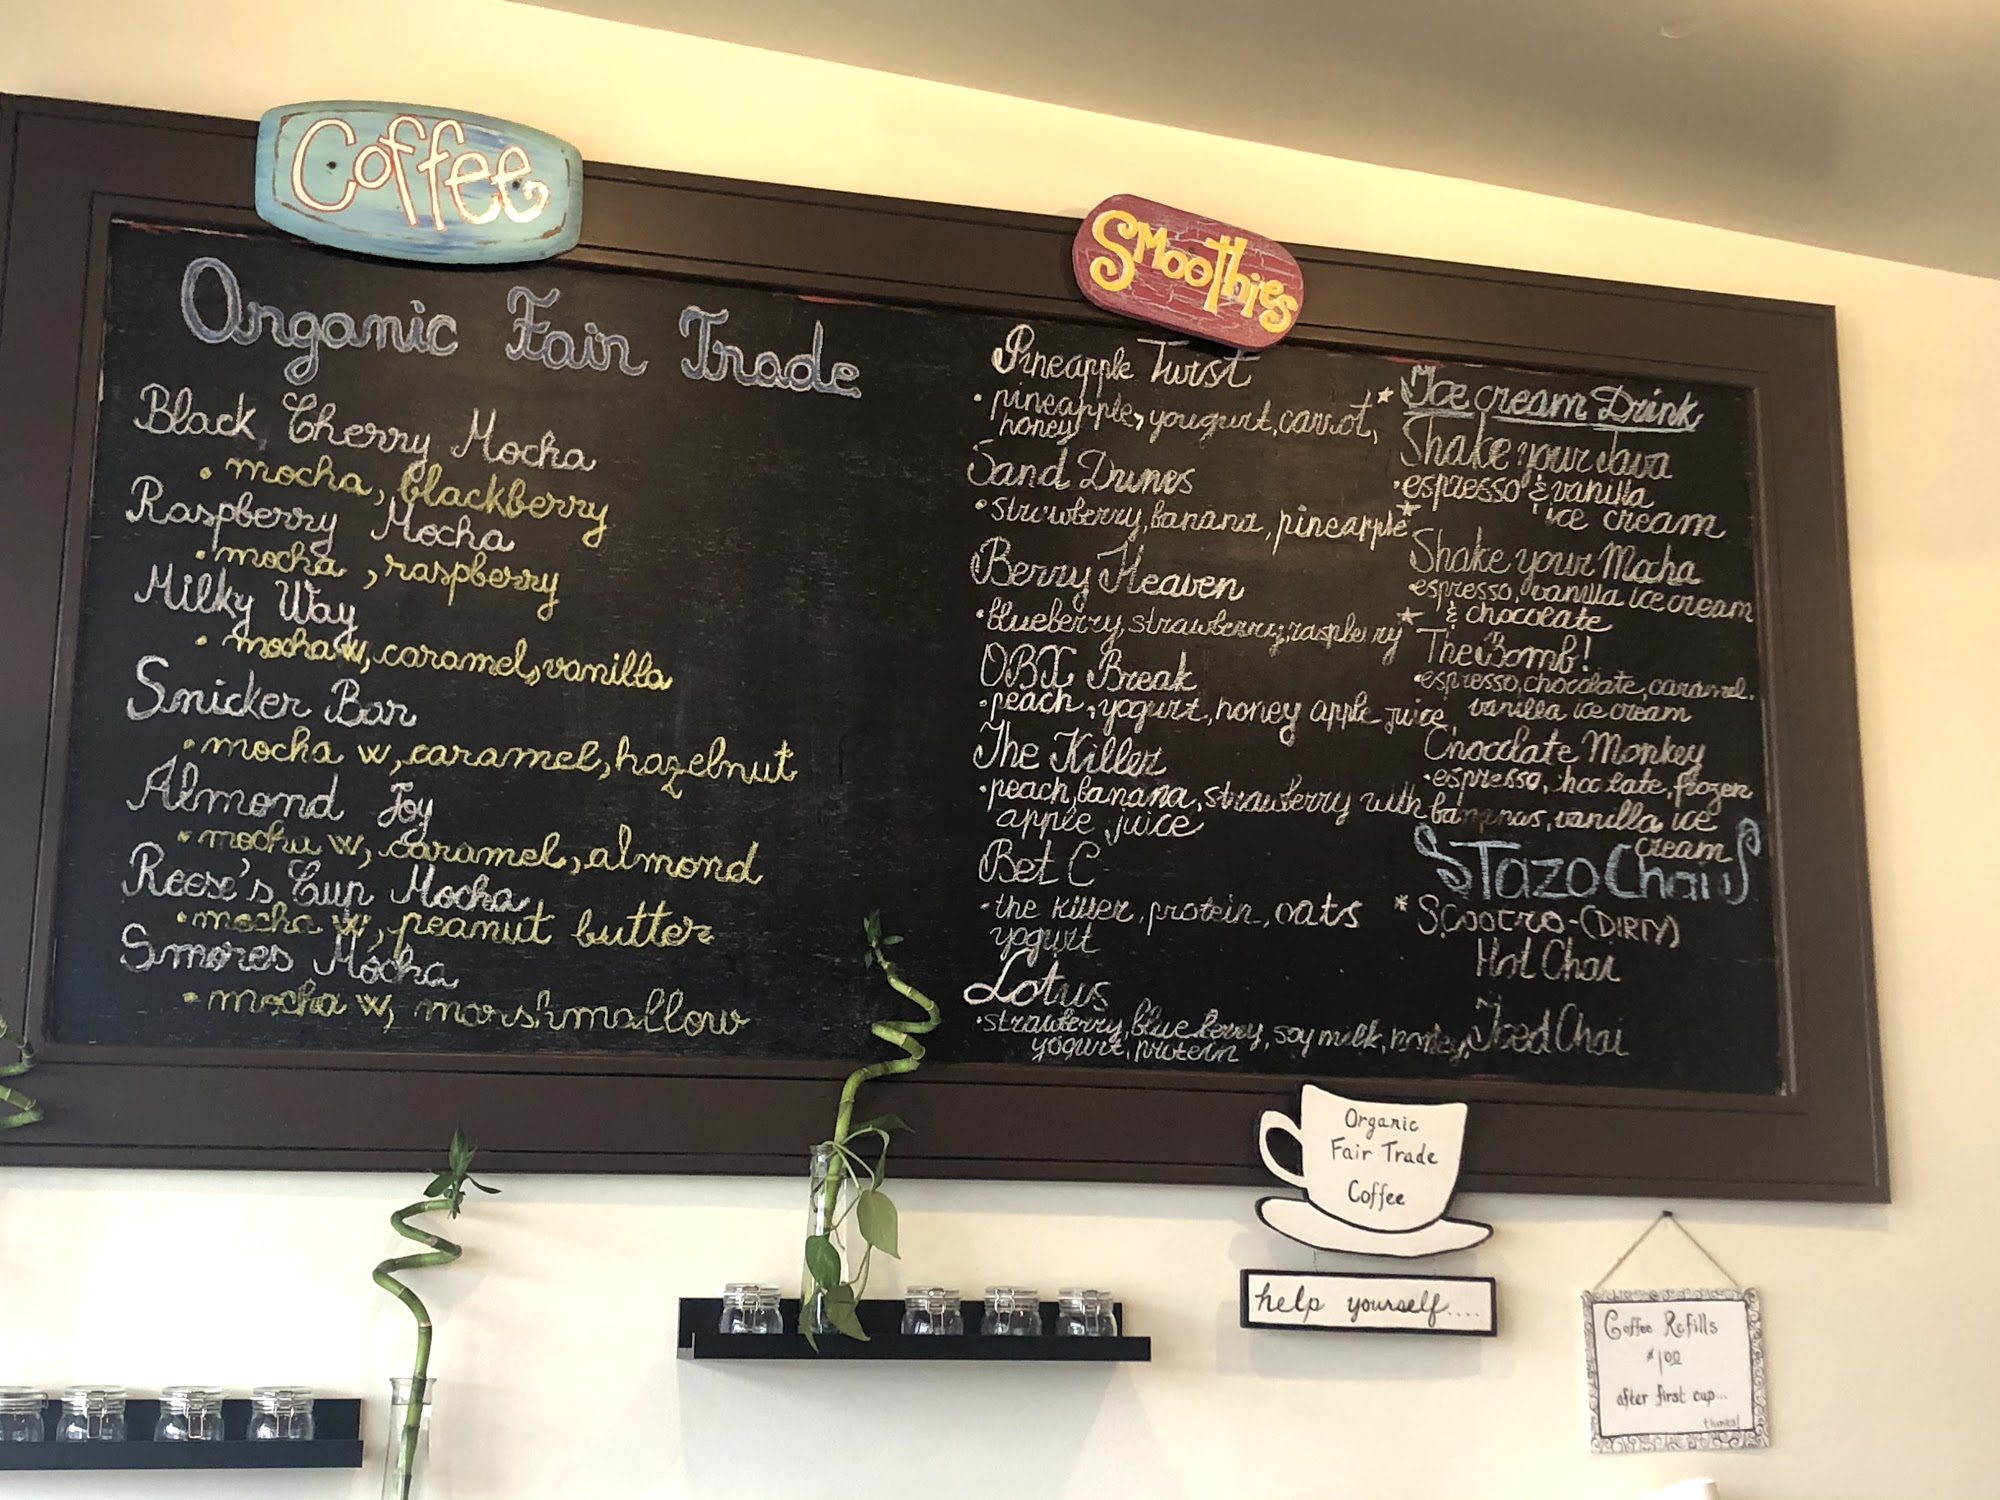 Coffee
Organic Fair Trade
Black Cherry Mocha
• mocha, blackberry
Raspberry Mocha
• mocha, raspberry
Milky Way
• mocha w, caramel, vanilla
Snicker Bar
• mocha w, caramel, hazelnut
Almond Joy
• mocha w, caramel, almond
Reese's Cup Mocha
• mocha w, peanut butter
Smores Mocha
• mocha w, marshmallow
Smoothies
Pineapple Twist
• pineapple, yougurt, carrot,
honey
Sand Dunes
• strawberry, banana, pineapple
Berry Heaven
• blueberry, strawberry, raspberry
OBX Break
• peach, yogurt, honey apple juice
The Killer
• peach, banana, strawberry with
apple juice
Bet C
• the killer, protein, oats
yogurt
Lotus
• strawberry, blueberry, soy milk, honey,
yogurt, protein
* Ice cream Drink
Shake your Java
• espresso & vanilla
ice cream
* Shake your Mocha
• espresso, vanilla ice cream
& chocolate
* The Bomb!
• espresso, chocolate, caramel.
vanilla ice cream
Chocolate Monkey
• espresso, choclate, frozen
bananas, vanilla ice
cream
Tazo Chai
* Scootro-(DIRTY)
Hot Chai
Iced Chai
Organic
Fair Trade
Coffee
help yourself....
Coffee Refills
$1.00
after first cup...
thanks!